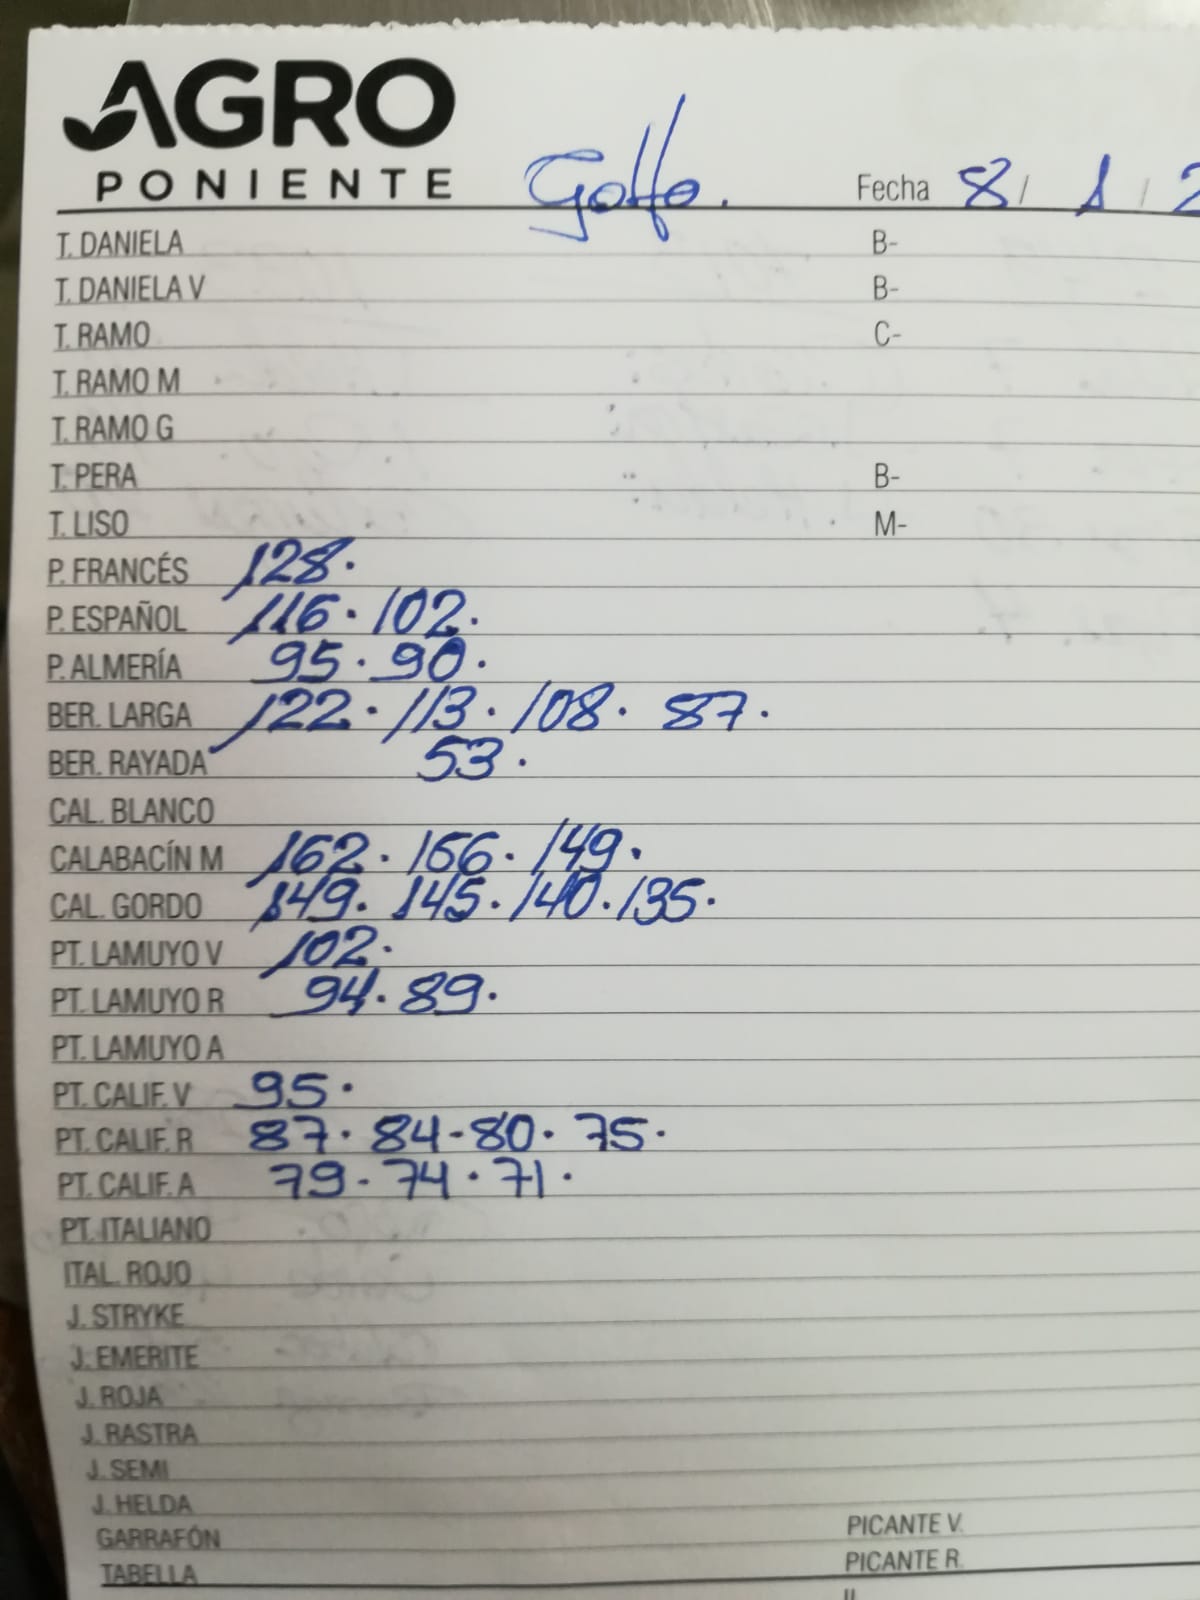 AGRO
PONIENTE Golfo. Fecha 8/ 1 / 2
T. DANIELA B-
T. DANIELA V B-
T. RAMO C-
T. RAMO M
T. RAMO G
T. PERA B-
T. LISO M-
P. FRANCÉS 128.
P. ESPAÑOL 116. 102.
P. ALMERÍA 95. 90.
BER. LARGA 122. 113. 108. 87.
BER. RAYADA 53.
CAL. BLANCO
CALABACÍN M 162. 156. 149.
CAL. GORDO 149. 145. 140. 135.
PT. LAMUYO V 102.
PT. LAMUYO R 94. 89.
PT. LAMUYO A
PT. CALIF. V 95.
PT. CALIF. R 87. 84-80. 75.
PT. CALIF. A 79-74. 71.
PT. ITALIANO
ITAL. ROJO
J. STRYKE
J. EMERITE
J. ROJA
J. RASTRA
J. SEMI
J. HELDA
GARRAFÓN PICANTE V.
TABELLA PICANTE R.